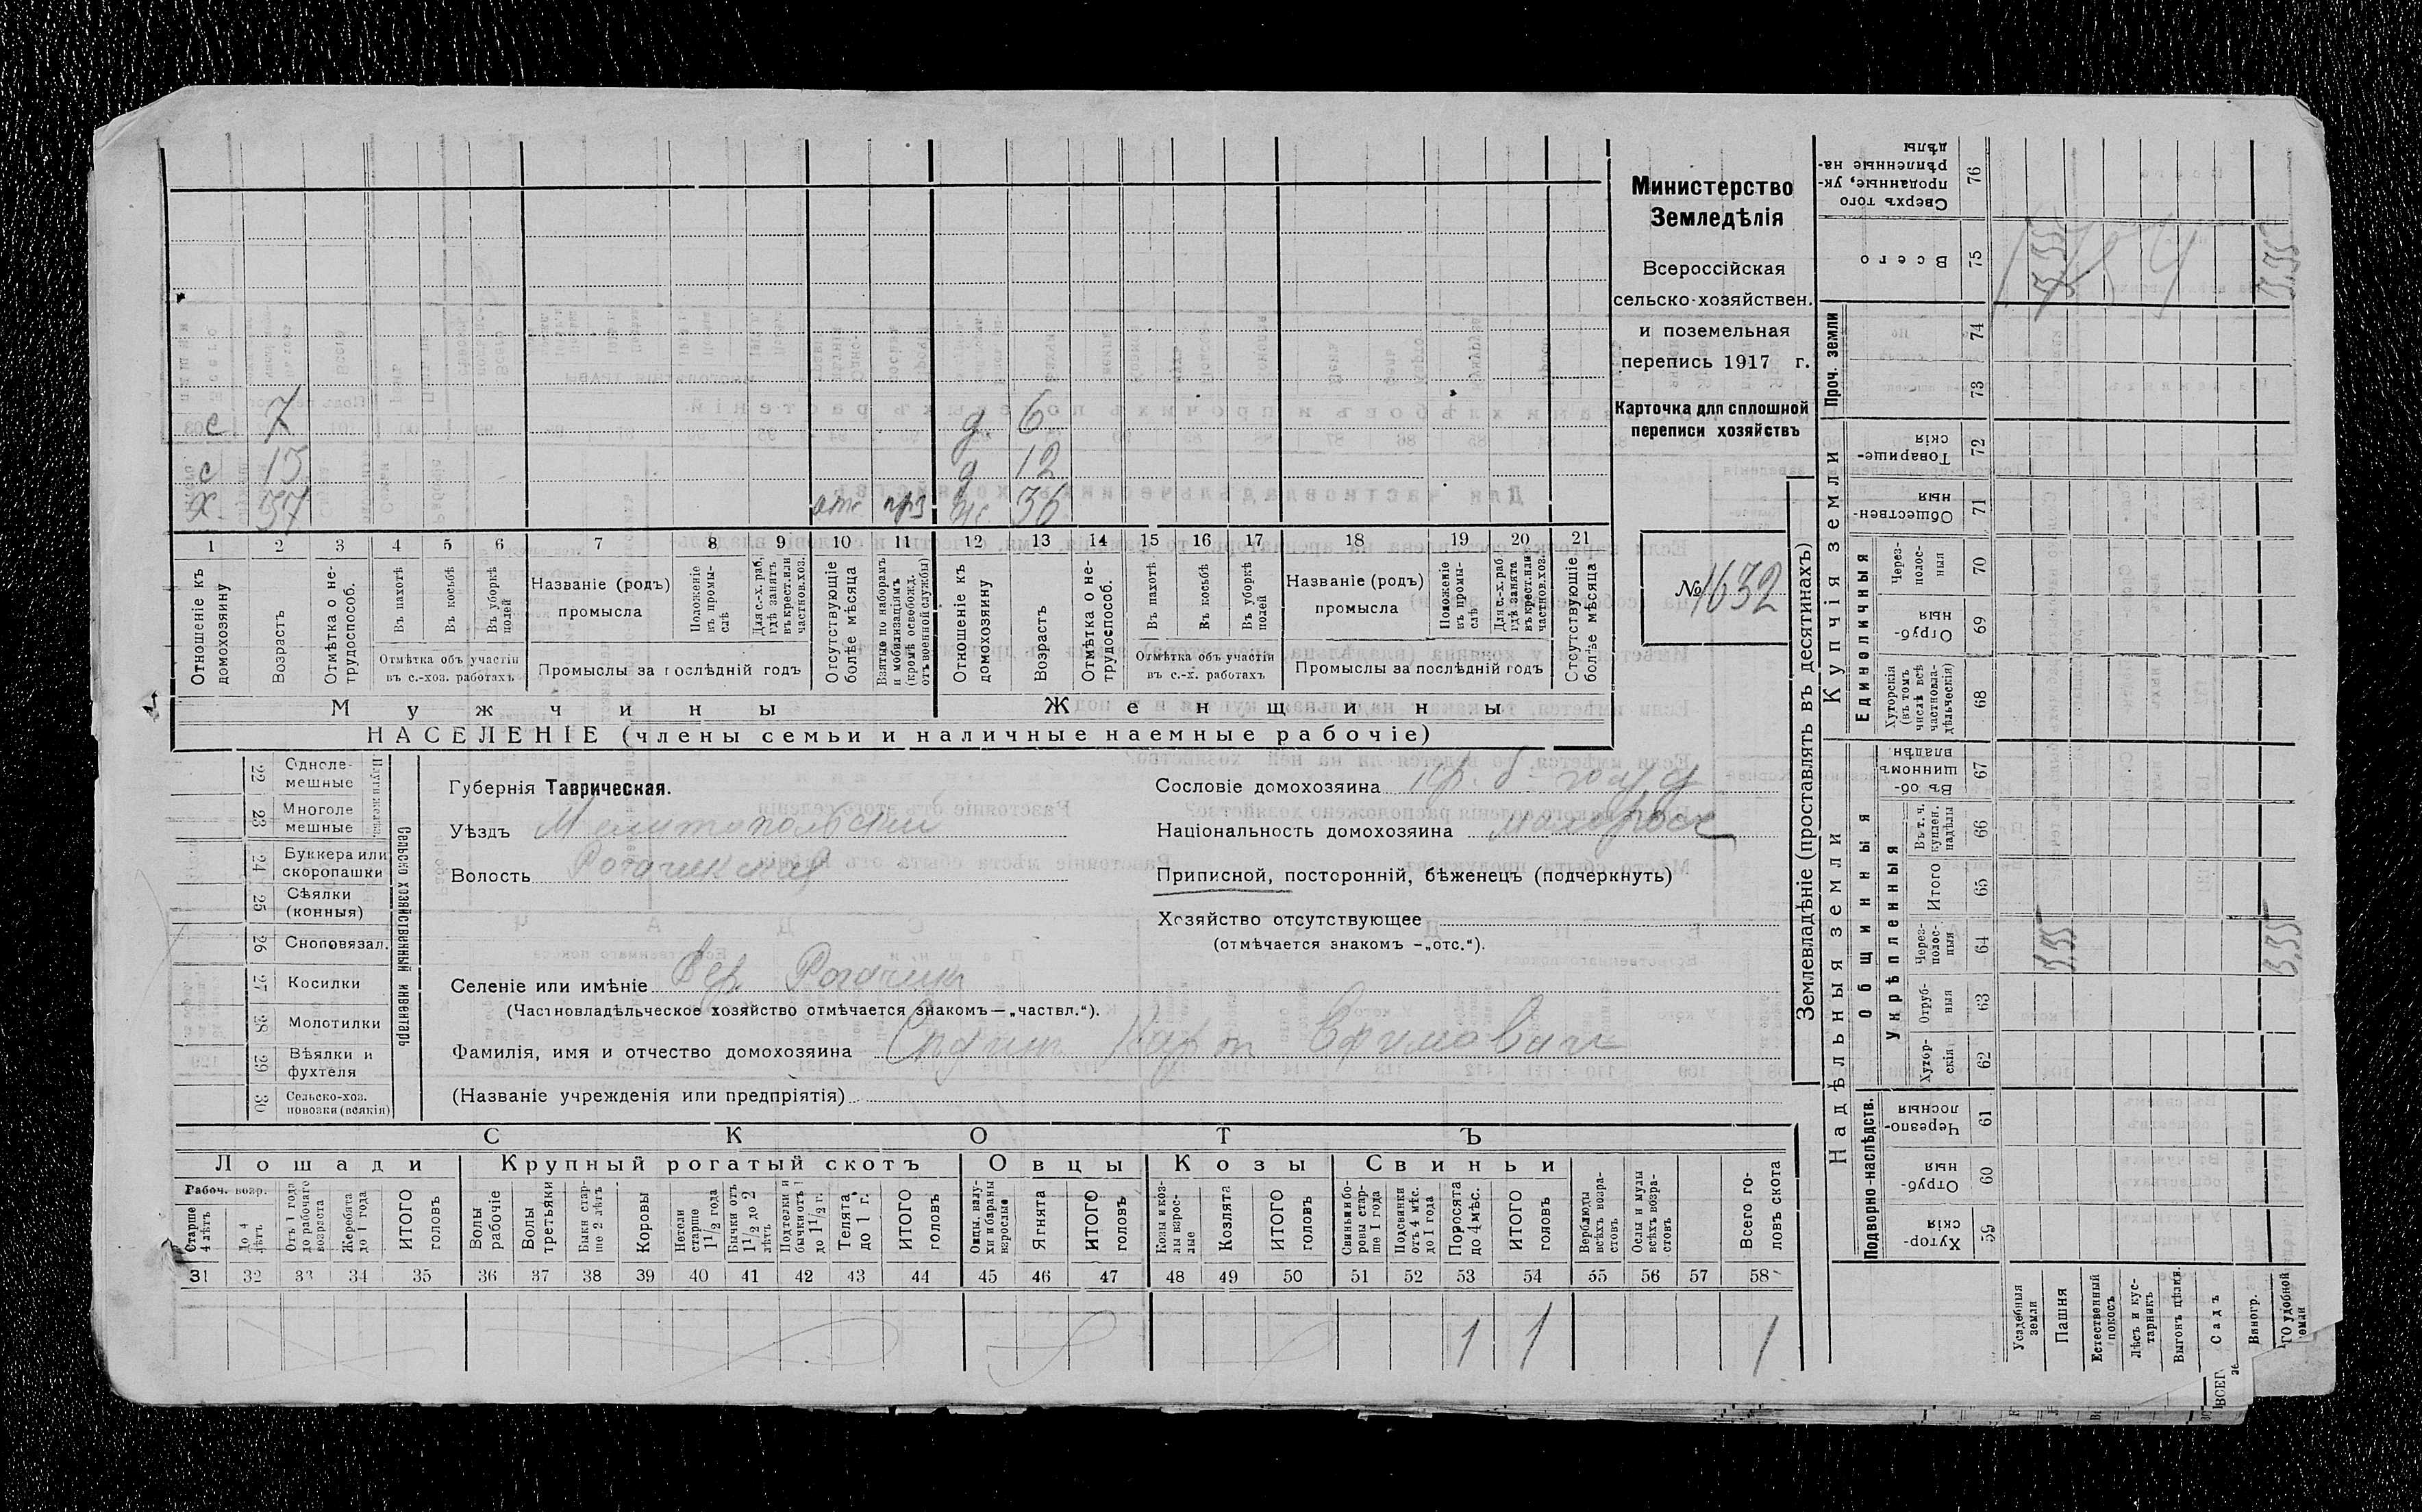 Министерство
Земледѣлія
Всероссійская
сельско-хозяйствен.
и поземельная
перепись 1917 г.
Карточка для сплошной
переписи хозяйствъ
№ 1632
с 7 д 6
с 13 д 12
х. 37 отс ж. 36
1 2 3 4 5 6 7 8 9 10 11 12 13 14 15 16 17 18 19 20 21
Отношеніе къ домохозяину
Возрастъ
Отмѣтка о нетрудоспособ.
Въ пахотѣ
Въ косьбѣ
Въ уборкѣ полей
Отмѣтка объ участіи въ с.-хоз. работахъ
Названіе (родъ) промысла
Положеніе въ промыслѣ
Для с.-х. раб. гдѣ занятъ въ крест. или частнов. хоз.
Промыслы за послѣдній годъ
Отсутствующіе болѣе мѣсяца
Взятые по наборамъ и мобилизаціямъ (кромѣ освобожд. отъ военной службы)
Отношеніе къ домохозяину
Возрастъ
Отмѣтка о нетрудоспособ.
Въ пахотѣ
Въ косьбѣ
Въ уборкѣ полей
Отмѣтка объ участіи въ с.-х. работахъ
Названіе (родъ) промысла
Положеніе въ промыслѣ
Для с.-х. раб. гдѣ занята въ крест. или частнов. хоз.
Промыслы за послѣдній годъ
Отсутствующіе болѣе мѣсяца
Мужчины Женщины
НАСЕЛЕНІЕ (члены семьи и наличные наемные рабочіе)
22 Однолемешные
23 Многолемешные
24 Буккера или скоропашки
25 Сѣялки (конныя)
26 Сноповязал.
27 Косилки
28 Молотилки
29 Вѣялки и фухтеля
30 Сельско-хоз. повозки (всякія)
Сельско хозяйственный инвентарь
Губернія Таврическая.
Уѣздъ Мелитопольский
Волость Рогачикская
Селеніе или имѣніе Вер. Рогачик
(Частновладѣльческое хозяйство отмѣчается знакомъ — „частвл.“).
Фамилія, имя и отчество домохозяина
(Названіе учрежденія или предпріятія)
Сословіе домохозяина кр. б.
Національность домохозяина малоросс
Приписной, посторонній, бѣженецъ (подчеркнуть)
Хозяйство отсутствующее
(отмѣчается знакомъ -„отс.“).
СКОТЪ
Лошади Крупный рогатый скотъ Овцы Козы Свиньи
Рабоч. возр.
Старше 4 лѣтъ
До 4 лѣтъ
Отъ 1 года до рабочаго возраста
Жеребята до 1 года
ИТОГО головъ
Волы рабочіе
Волы третьяки
Быки старше 2 лѣтъ
Коровы
Нетели старше 1 1/2 года
Бычки отъ 1 1/2 до 2 лѣтъ
Подтелки и бычки отъ 1 до 1 1/2 г.
Телята до 1 г.
ИТОГО головъ
Овцы, валухи и бараны взрослые
Ягнята
ИТОГО головъ
Козы и козлы взрослые
Козлята
ИТОГО головъ
Свиньи и боровы старше 1 года
Подсвинки отъ 4 мѣс. до 1 года
Поросята до 4 мѣс.
ИТОГО головъ
Верблюды всѣхъ возрастовъ
Ослы и мулы всѣхъ возрастовъ
Всего головъ скота
31 32 33 34 35 36 37 38 39 40 41 42 43 44 45 46 47 48 49 50 51 52 53 54 55 56 57 58
1 1 1
Землевладѣніе (проставлять въ десятинахъ)
Надѣльныя земли Купчія земли Проч. земли
Подворно-наслѣдств.
Общинныя
Укрѣпленныя
Единоличныя
59 Хуторскія
60 Отрубныя
61 Черезполосныя
62 Хуторскія
63 Отрубныя
64 Черезполосныя
65 Итого
66 Въ т. ч. куплен. надѣлы
67 Въ общинномъ владѣн.
68 Хуторскія (въ томъ числѣ всѣ частновладѣльческія)
69 Отрубныя
70 Черезполосныя
71 Общественныя
72 Товарищескія
73
74
75 Всего
76 Сверхъ того проданные, укрѣпленные надѣлы
Усадебныя земли
Пашня
Естественный покосъ
Лѣсъ и кустарникъ
Выгонъ цѣлин.
Садъ
Виногр.